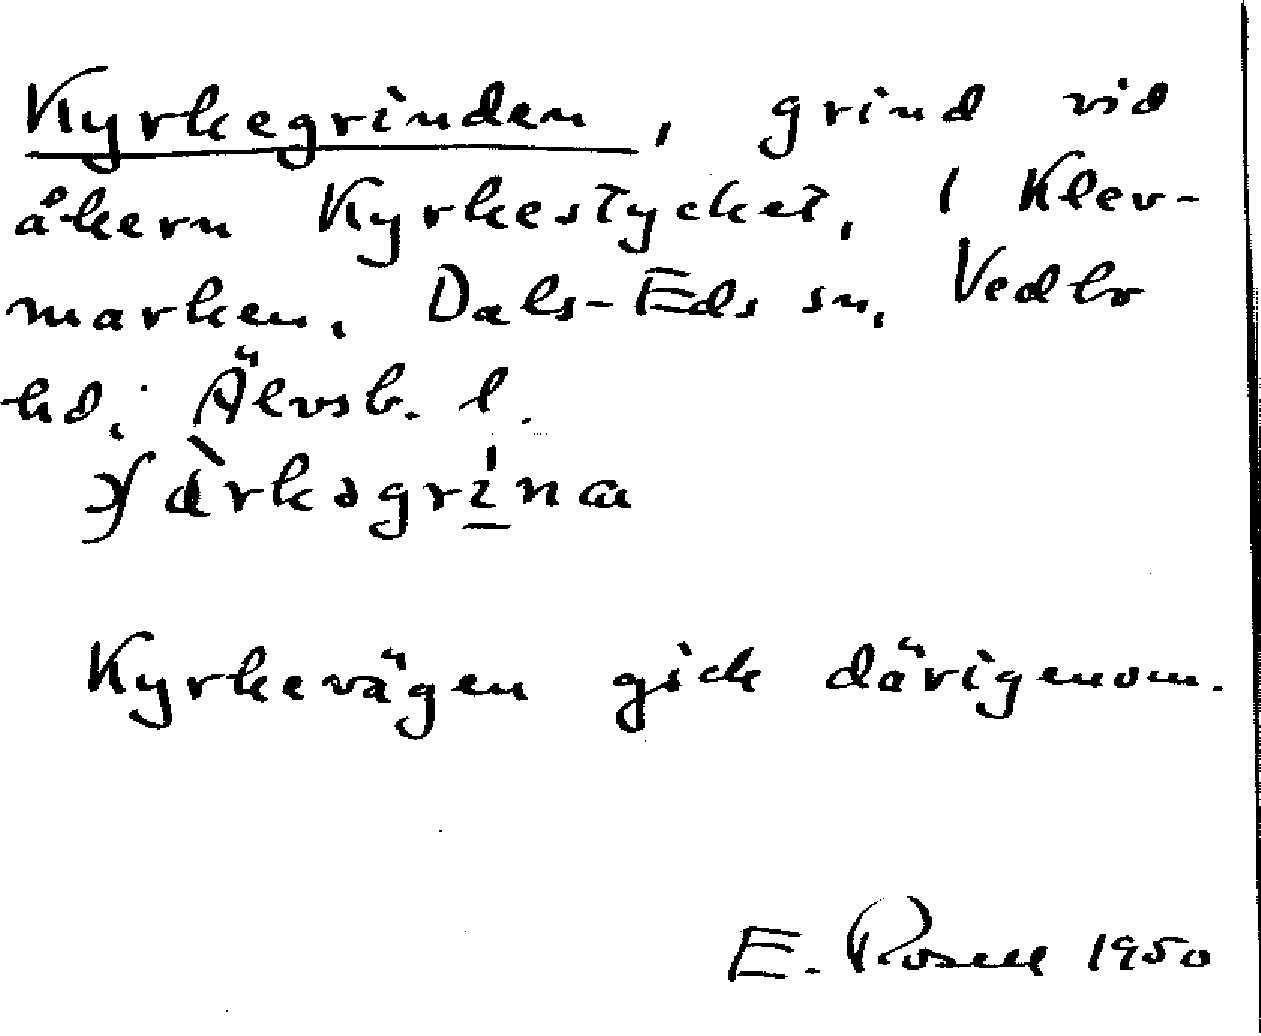 Kyrkegrinden, grind vid
åkern Kyrkestycket, 1 Klev-
marken, Dals-Eds sn, Vedbo
hd, Älvsb. l.
Kyrkevägen gick därigenom.
E. Rosell 1950